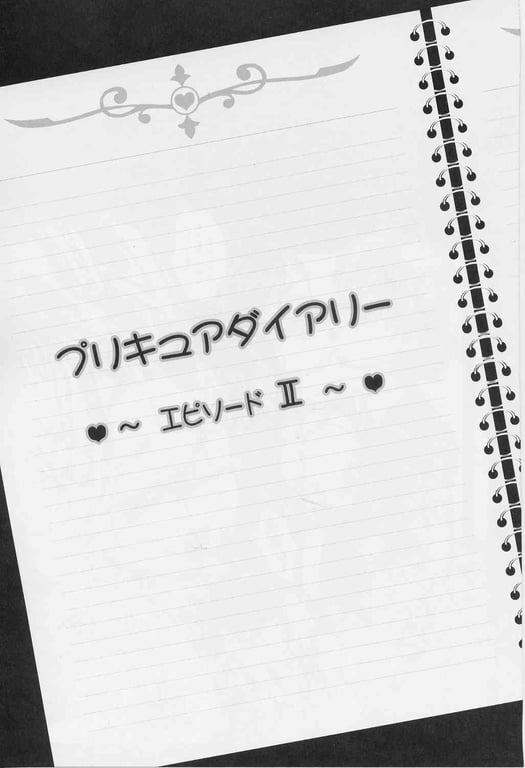 プリキュアダイアリー
♥ ～ エピソード Ⅱ ～ ♥